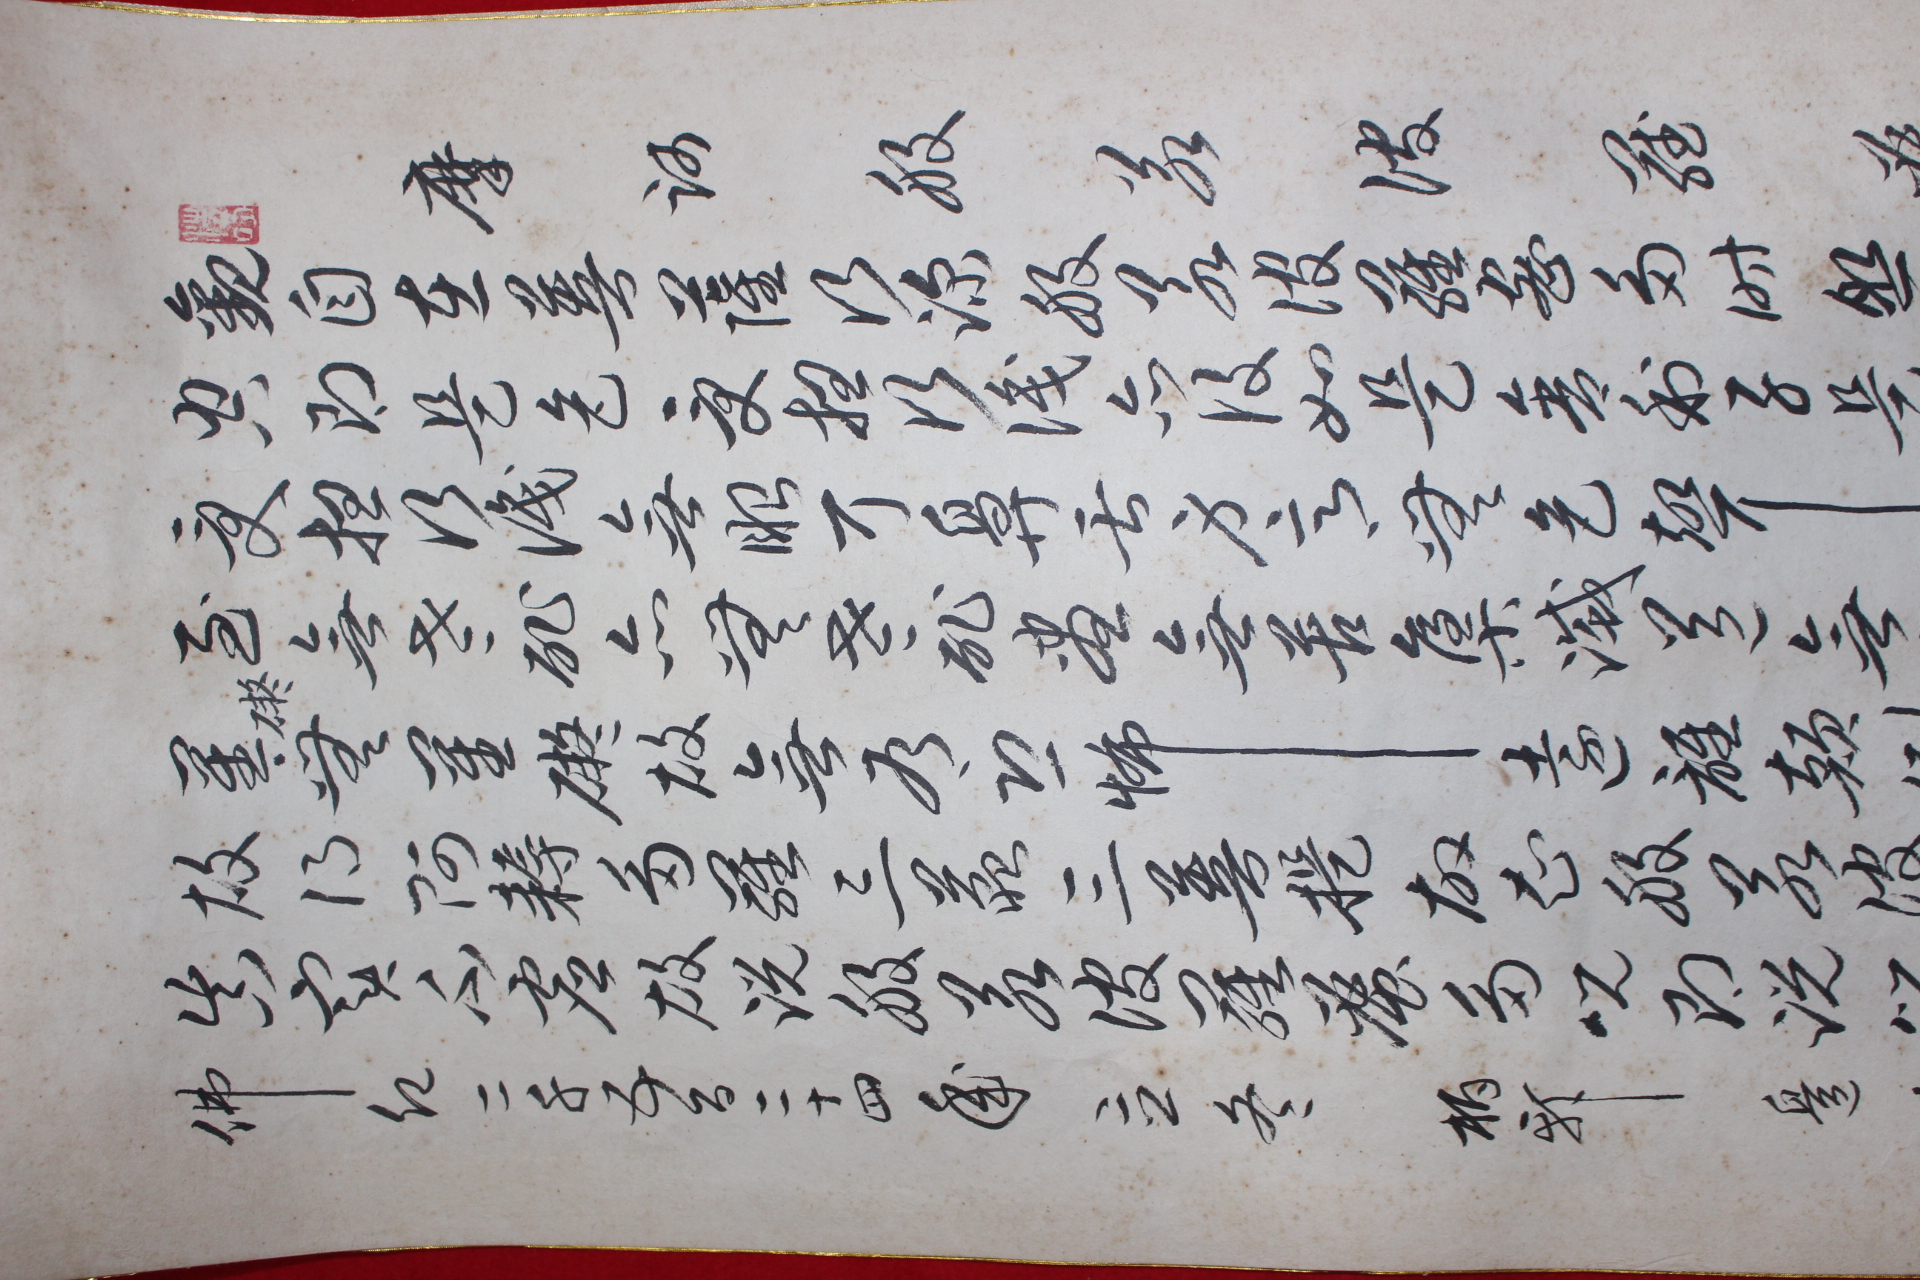 摩訶般若波羅
觀自在菩薩行深般若波羅蜜多時照
空即是色受想行識亦復如是舍利子是
受想行識無眼耳鼻舌身意無色聲
至無老死亦無老死盡無苦集滅道無
罣礙無罣礙故無有恐怖遠離顛倒
故得阿耨多羅三藐三菩提故知般若波
真實不虛故說般若波羅蜜多呪即說呪
佛紀二千五百二十四年 立冬